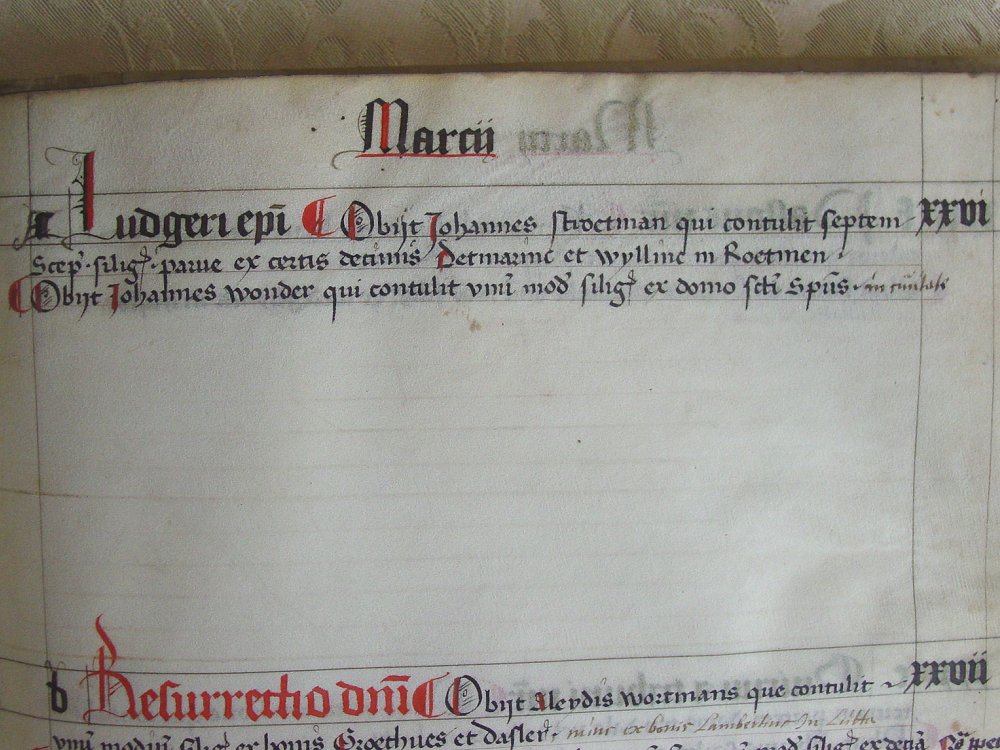 Marcij
A Ludgeri epī ¶ Obijt Johannes stroetman qui contulit septem xxvi
Scep. silig. parue ex certis decimis Detmarinc et wyllinc in Roetmen
¶ Obijt Johannes wonder qui contulit vnū mod silig ex domo scti Spūs in ciuitate
b Resurrectio dnī ¶ Obijt Aleydis wortmans que contulit xxvii
vnū modiū silig ex bonis Groethues et dasler nunc ex bonis Lambertinc in Lutte